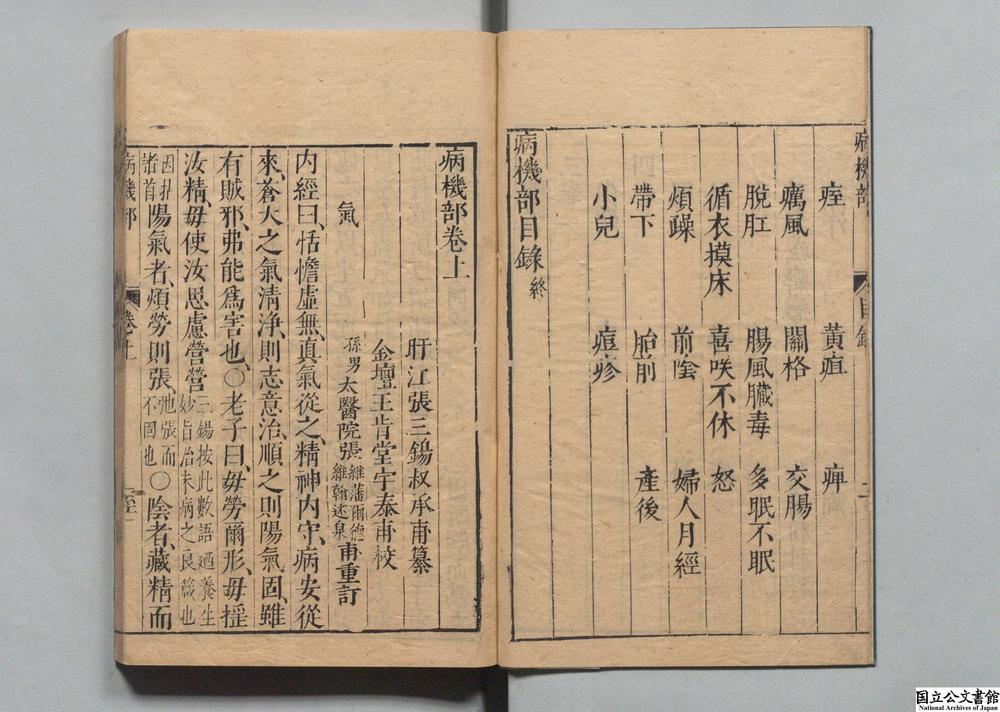 病機部
目錄
二
痓
黃疸
痺
癘風
關格
交腸
脫肛
腸風臟毒
多眠不眠
循衣摸床
喜咲不休
怒
煩躁
前陰
婦人月經
帶下
胎前
產後
小兒
痘疹
病機部目錄終
病機部卷上
盱江張三錫叔承甫纂
金壇王肯堂宇泰甫校
孫男太醫院張維藩爾德維翰述泉甫重訂
氣
內經曰、恬憺虛無、真氣從之、精神內守、病安從
來、蒼天之氣清淨、則志意治、順之則陽氣固、雖
有賊邪、弗能爲害也、〇老子曰、毋勞爾形、毋搖
汝精、毋使汝思慮營營三錫按此數語廼養生妙旨治未病之良箴也
諸首陽氣者、煩勞則張、弛張而不固也〇陰者、藏精而
病機部
卷上
国立公文書館
National Archives of Japan